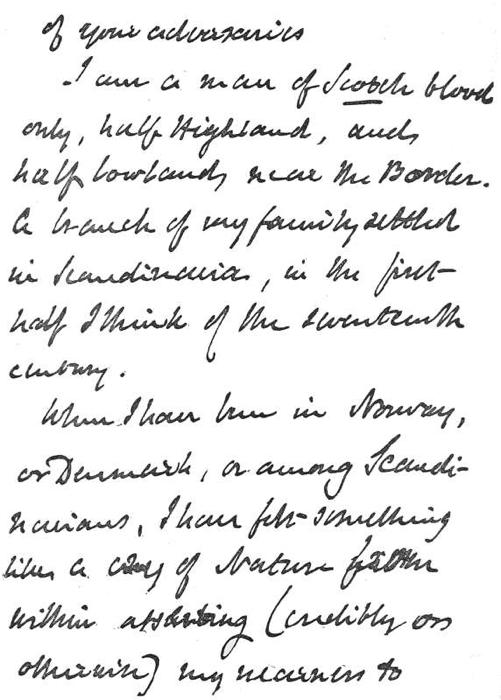 of your adversaries
I am a man of Scotch blood
only, half Highland, and
half lowland near the Border.
A branch of my family settled
in Scandinavia, in the first
half I think of the seventeenth
century.
When I have been in Norway,
or Denmark, or among Scandi-
navians, I have felt something
like a cry of Nature from
within asserting (credibly or
otherwise) my nearness to